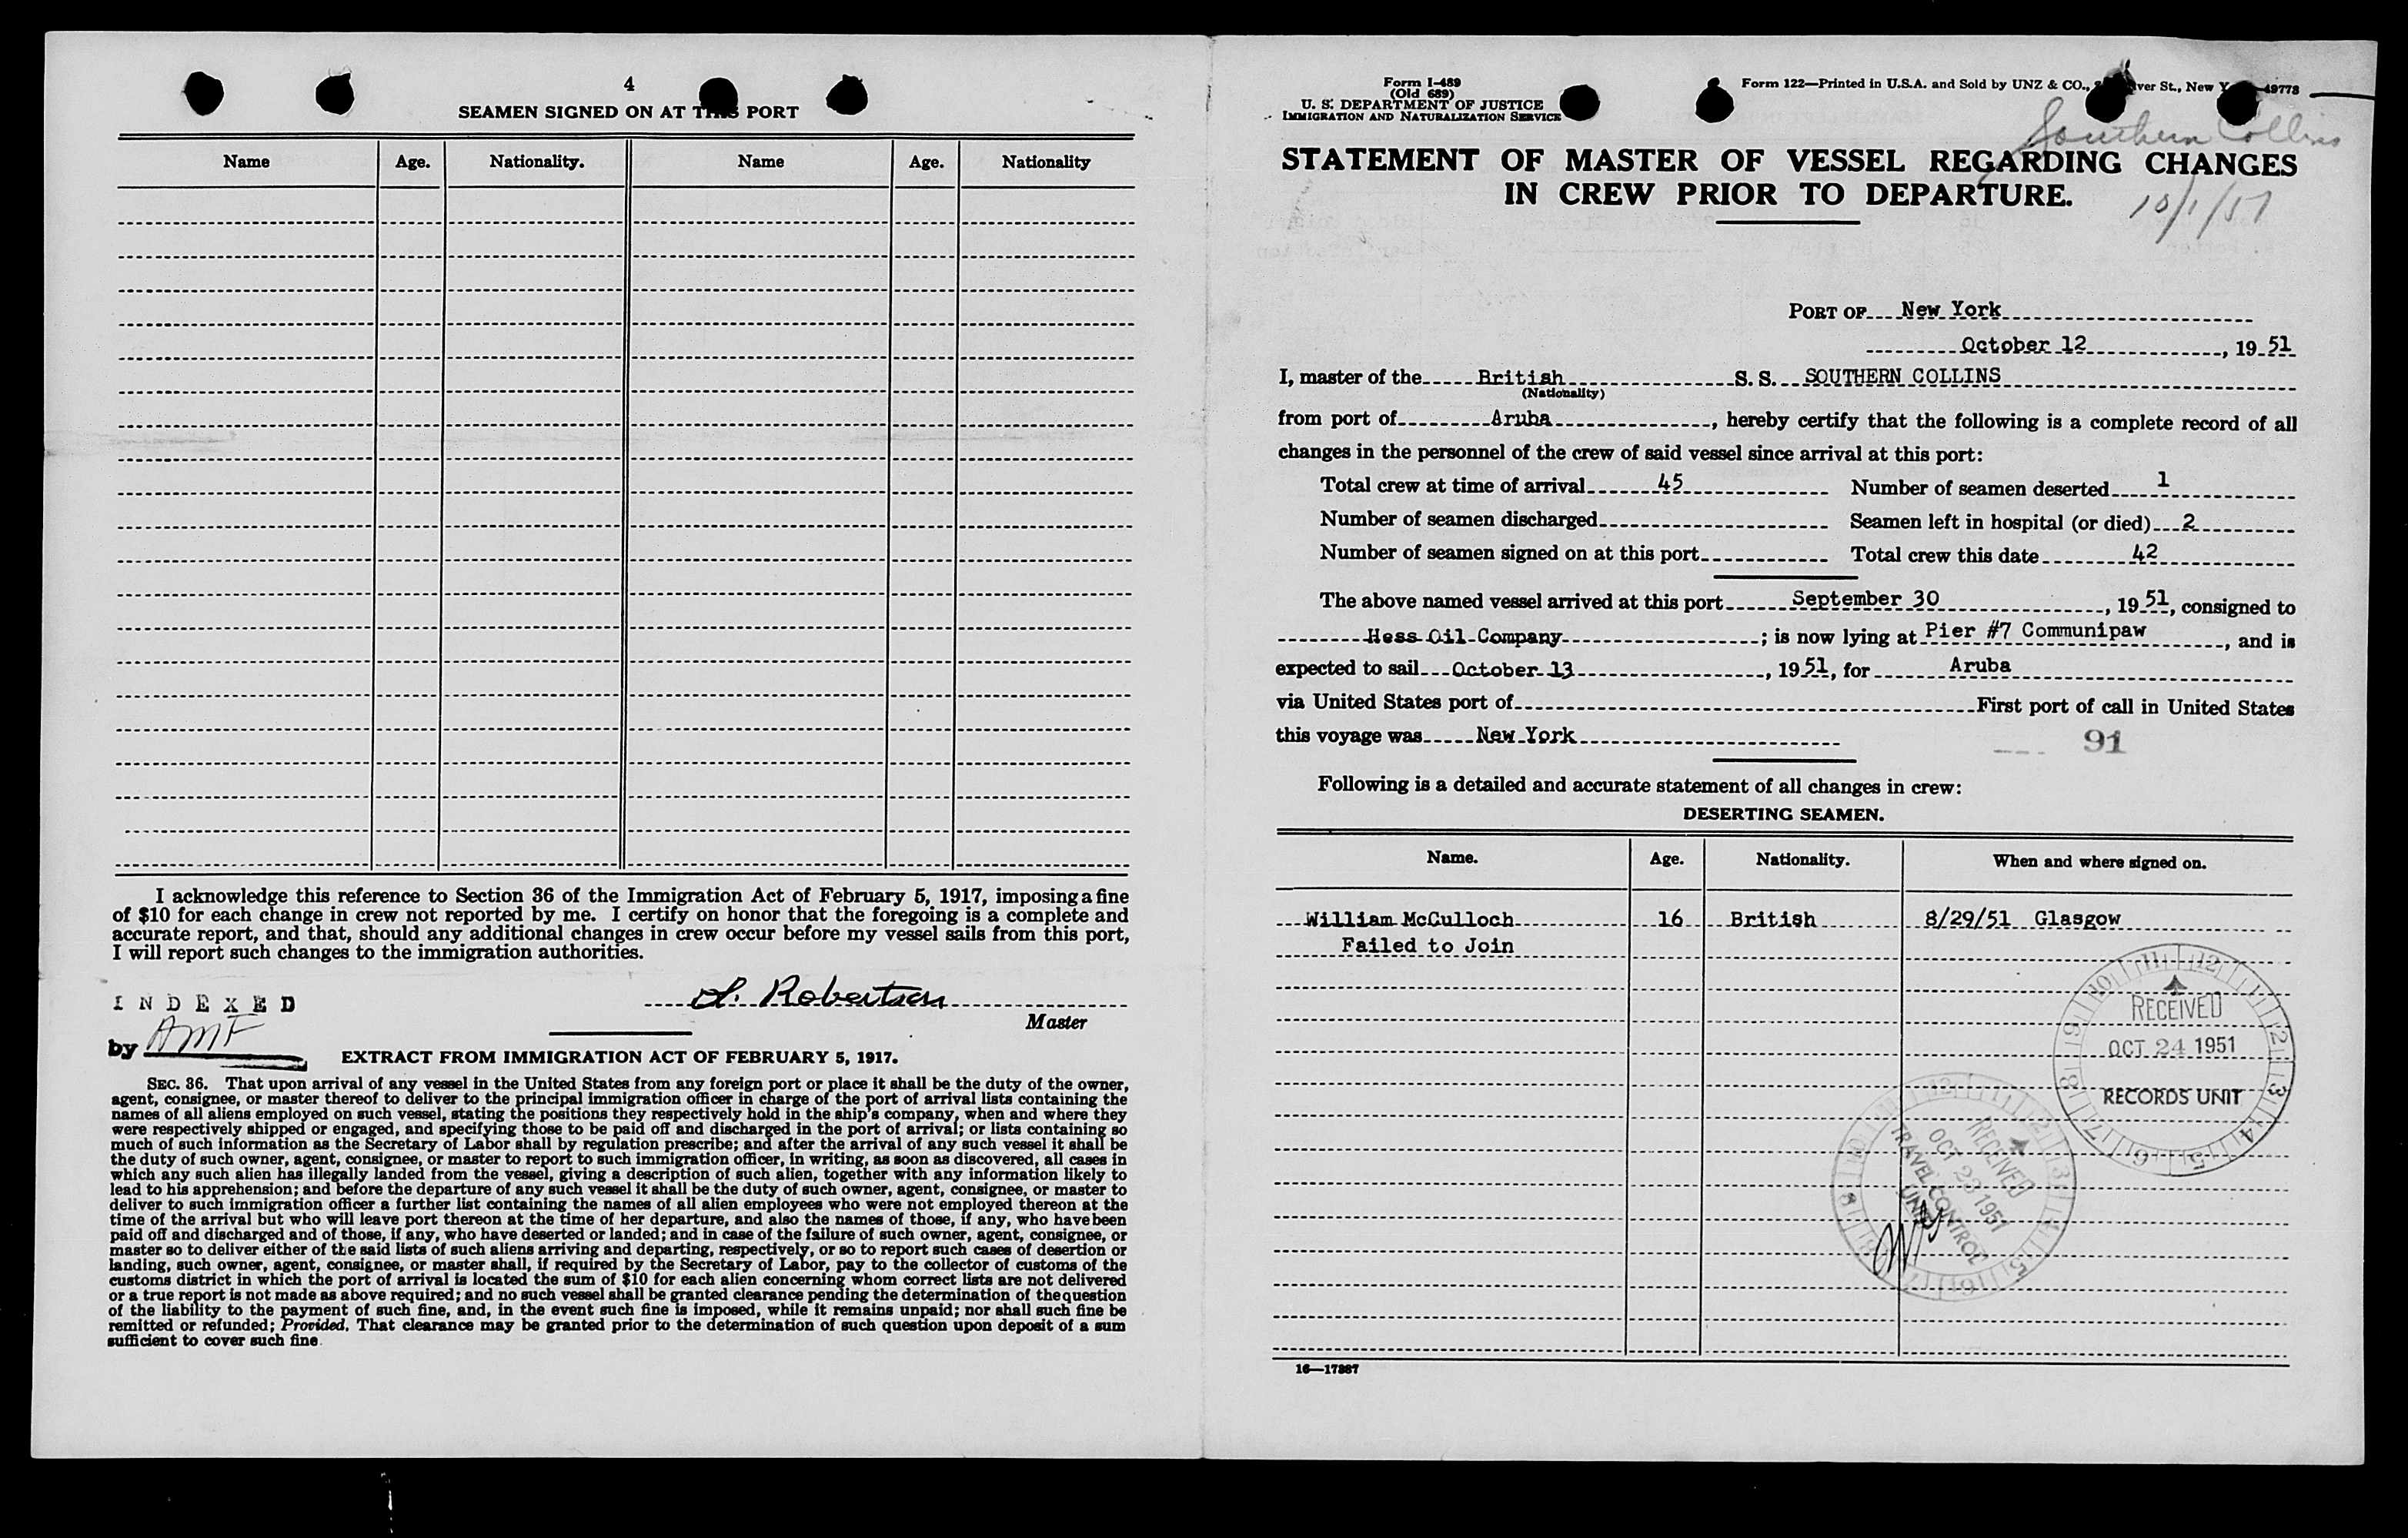 4
SEAMEN SIGNED ON AT THIS PORT
Name Age. Nationality. Name Age. Nationality
I acknowledge this reference to Section 36 of the Immigration Act of February 5, 1917, imposing a fine
of $10 for each change in crew not reported by me. I certify on honor that the foregoing is a complete and
accurate report, and that, should any additional changes in crew occur before my vessel sails from this port,
I will report such changes to the immigration authorities.
INDEXED
Robertson
Master
by AMF
EXTRACT FROM IMMIGRATION ACT OF FEBRUARY 5, 1917.
SEC. 36. That upon arrival of any vessel in the United States from any foreign port or place it shall be the duty of the owner,
agent, consignee, or master thereof to deliver to the principal immigration officer in charge of the port of arrival lists containing the
names of all aliens employed on such vessel, stating the positions they respectively hold in the ship's company, when and where they
were respectively shipped or engaged, and specifying those to be paid off and discharged in the port of arrival; or lists containing so
much of such information as the Secretary of Labor shall by regulation prescribe; and after the arrival of any such vessel it shall be
the duty of such owner, agent, consignee, or master to report to such immigration officer, in writing, as soon as discovered, all cases in
which any such alien has illegally landed from the vessel, giving a description of such alien, together with any information likely to
lead to his apprehension; and before the departure of any such vessel it shall be the duty of such owner, agent, consignee, or master to
deliver to such immigration officer a further list containing the names of all alien employees who were not employed thereon at the
time of the arrival but who will leave port thereon at the time of her departure, and also the names of those, if any, who have been
paid off and discharged and of those, if any, who have deserted or landed; and in case of the failure of such owner, agent, consignee, or
master so to deliver either of the said lists of such aliens arriving and departing, respectively, or so to report such cases of desertion or
landing, such owner, agent, consignee, or master shall, if required by the Secretary of Labor, pay to the collector of customs of the
customs district in which the port of arrival is located the sum of $10 for each alien concerning whom correct lists are not delivered
or a true report is not made as above required; and no such vessel shall be granted clearance pending the determination of the question
of the liability to the payment of such fine, and, in the event such fine is imposed, while it remains unpaid; nor shall such fine be
remitted or refunded; Provided, That clearance may be granted prior to the determination of such question upon deposit of a sum
sufficient to cover such fine.
Form I-489
(Old 689)
U. S. DEPARTMENT OF JUSTICE
IMMIGRATION AND NATURALIZATION SERVICE
Form 122—Printed in U.S.A. and Sold by UNZ & CO., St., New 49778
Southern Collins
STATEMENT OF MASTER OF VESSEL REGARDING CHANGES
IN CREW PRIOR TO DEPARTURE.
10/1/51
PORT OF New York
October 12, 1951
I, master of the British S. S. SOUTHERN COLLINS
(Nationality)
from port of Aruba, hereby certify that the following is a complete record of all
changes in the personnel of the crew of said vessel since arrival at this port:
Total crew at time of arrival 45 Number of seamen deserted 1
Number of seamen discharged Seamen left in hospital (or died) 2
Number of seamen signed on at this port Total crew this date 42
The above named vessel arrived at this port September 30, 1951, consigned to
Hess Oil Company; is now lying at Pier #7 Communipaw, and is
expected to sail October 13, 1951, for Aruba
via United States port of First port of call in United States
this voyage was New York
91
Following is a detailed and accurate statement of all changes in crew:
DESERTING SEAMEN.
Name. Age. Nationality. When and where signed on.
William McCulloch 16 British 8/29/51 Glasgow
Failed to Join
RECEIVED
OCT 24 1951
RECORDS UNIT
RECEIVED
OCT 23 1951
TRAVEL CONTROL
UNIT
16—17887